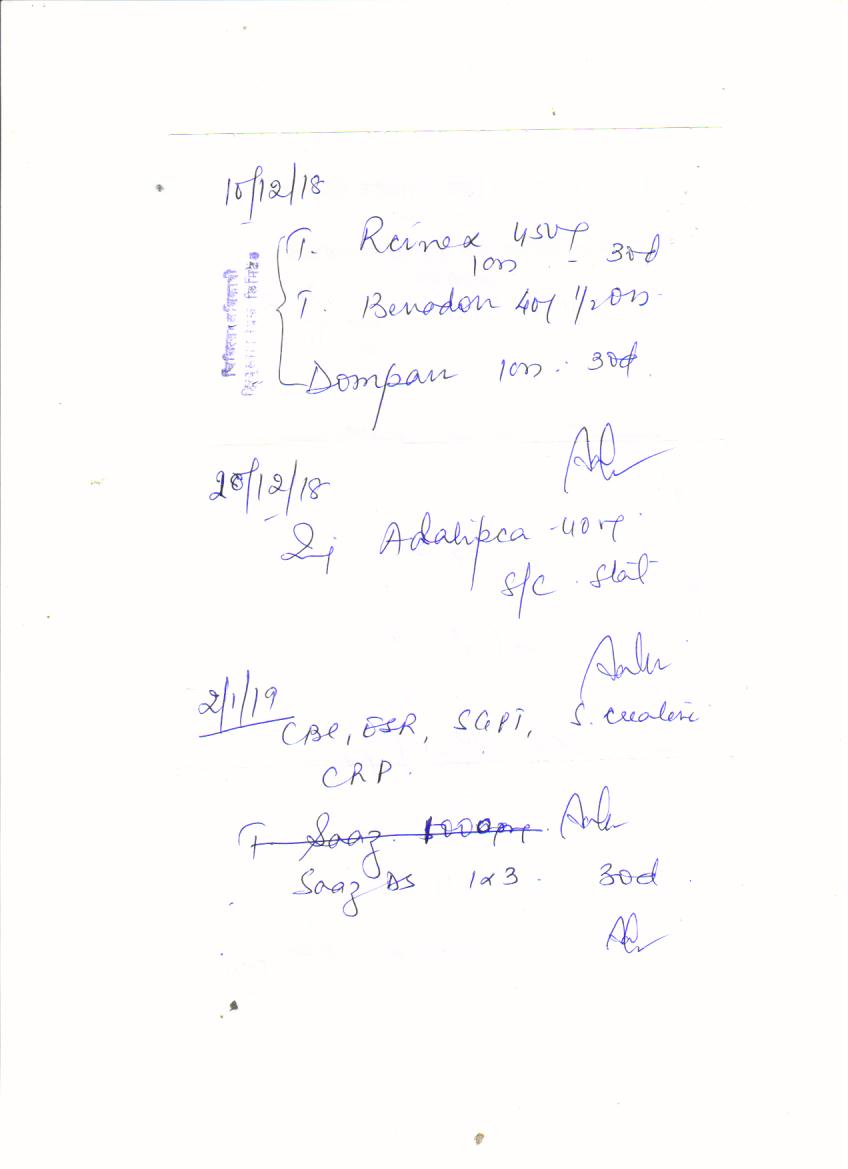 10/12/18
T. Rcinex 450mg
1 OD - 30d
T. Benadon 40mg 1/2 OD
Dompan 1 OD. 30d.
चिकित्सा अधिकारी
लिमिटेड
20/12/18
Inj Adalipca 40mg.
S/C. Stat
2/1/19
CBC, ESR, SGPT, S. Creatinine
CRP.
T. Saaz 1000mg.
Saaz DS 1x3. 30d.